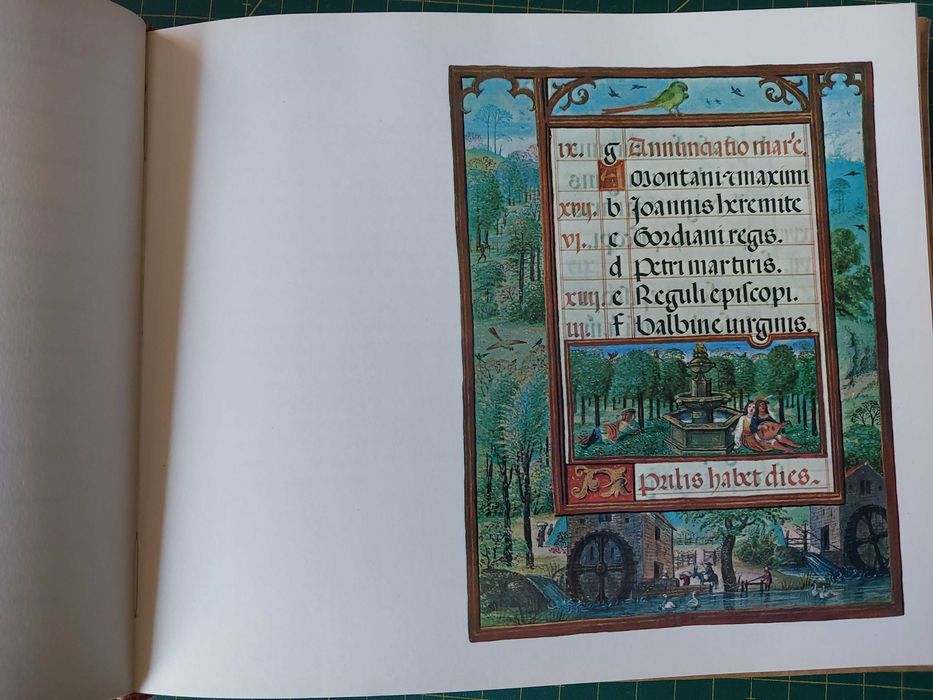 ix. g Annunciatio marc̄.
A Montani ⁊ maximi
xvij. b Joannis heremite
vj. c Gordiani regis.
d Petri martiris.
xiiij. e Reguli episcopi.
iij. f balbine uirginis.
Aprilis habet dies.